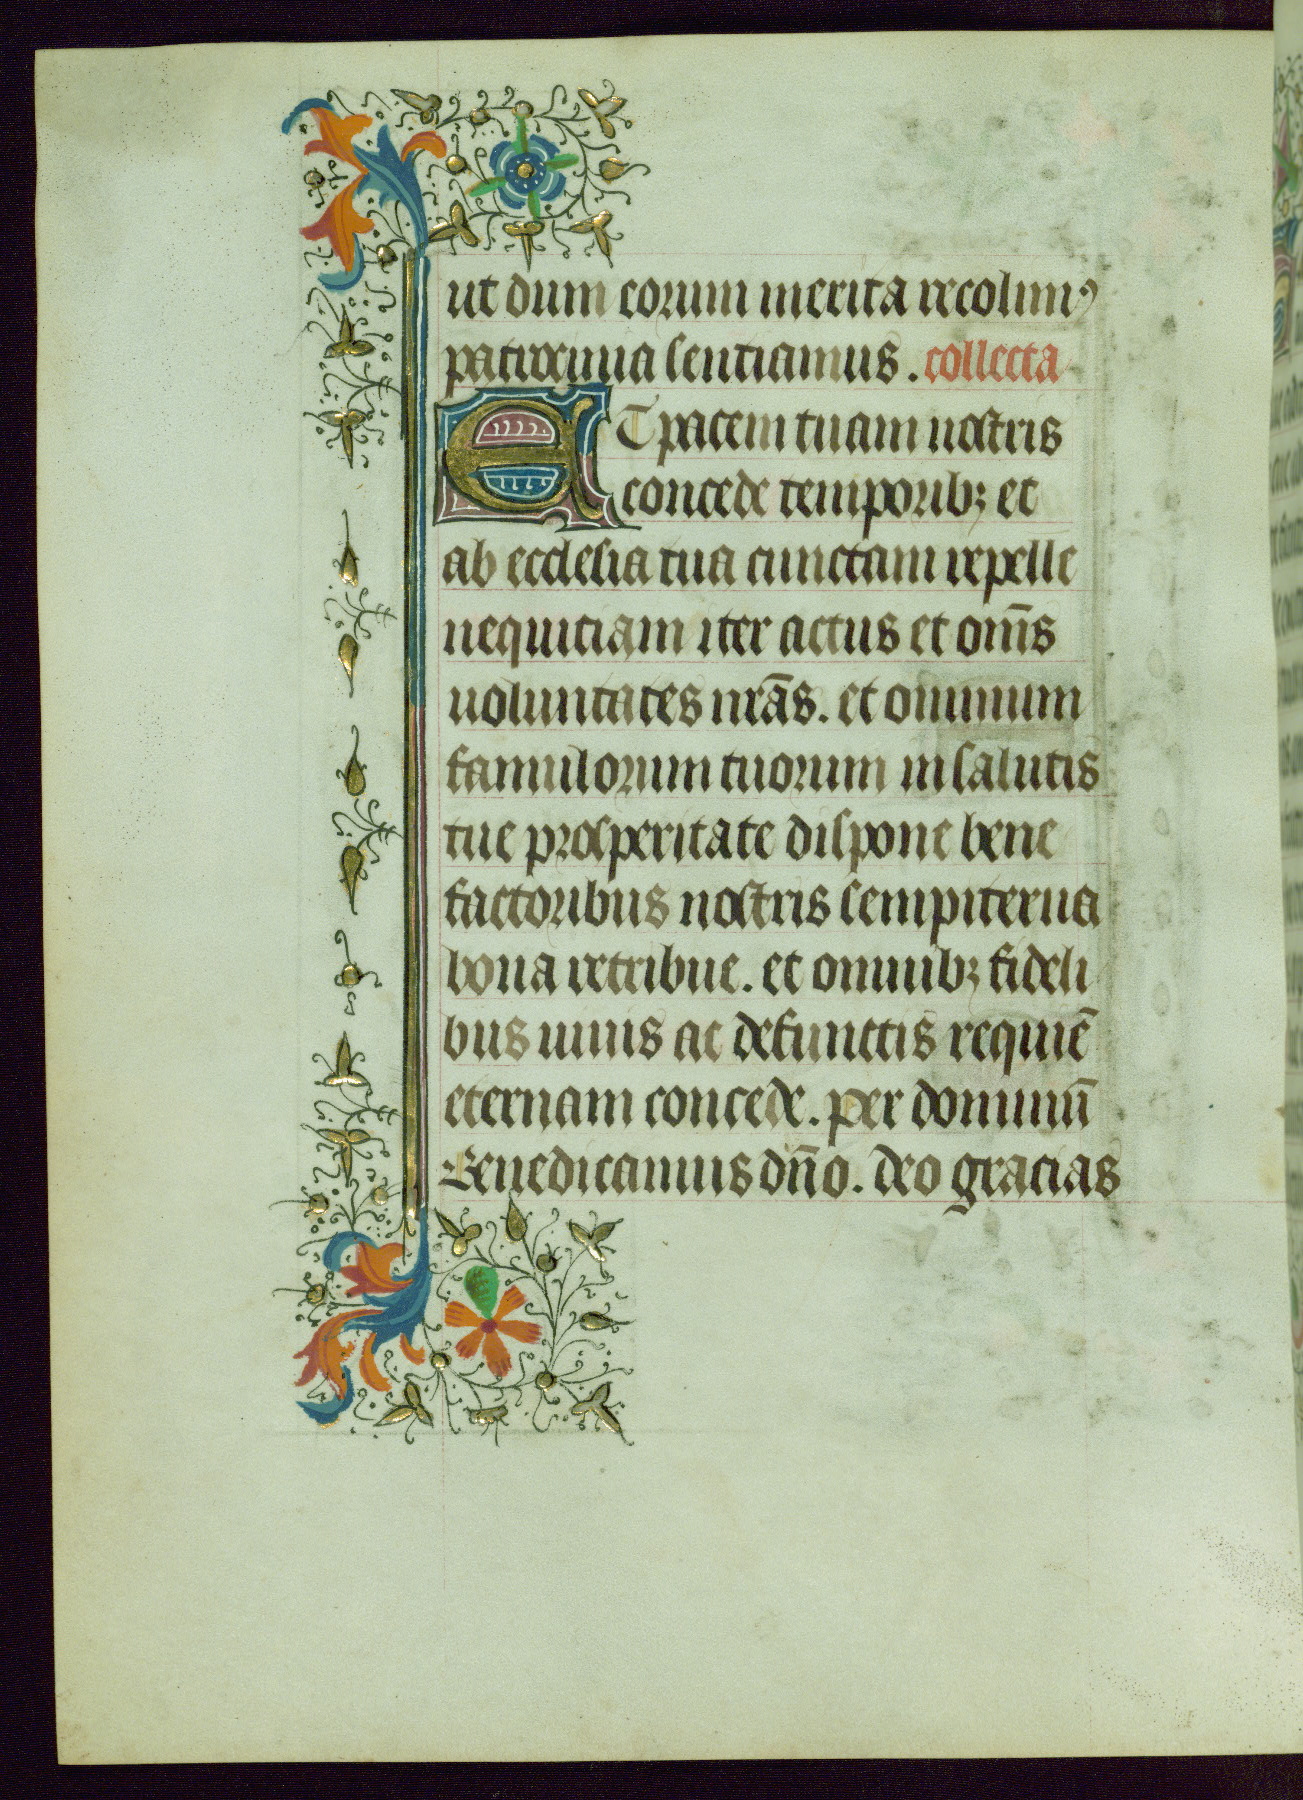 ut dum eorum merita recolimꝰ
patrocinia sentiamus. collecta
ET pacem tuam nostris
concede temporibꝫ et
ab ecclesia tua cunctam repelle
nequitiam iter actus et om̄s
uoluntates nr̄as. et omnium
famulorum tuorum in salutis
tue prosperitate dispone bene
factoribus nostris sempiterna
bona retribue. et omnibꝫ fideli
bus uiuis ac defunctis requiē
eternam concede. per dominū
Benedicamus dn̄o. deo gracias